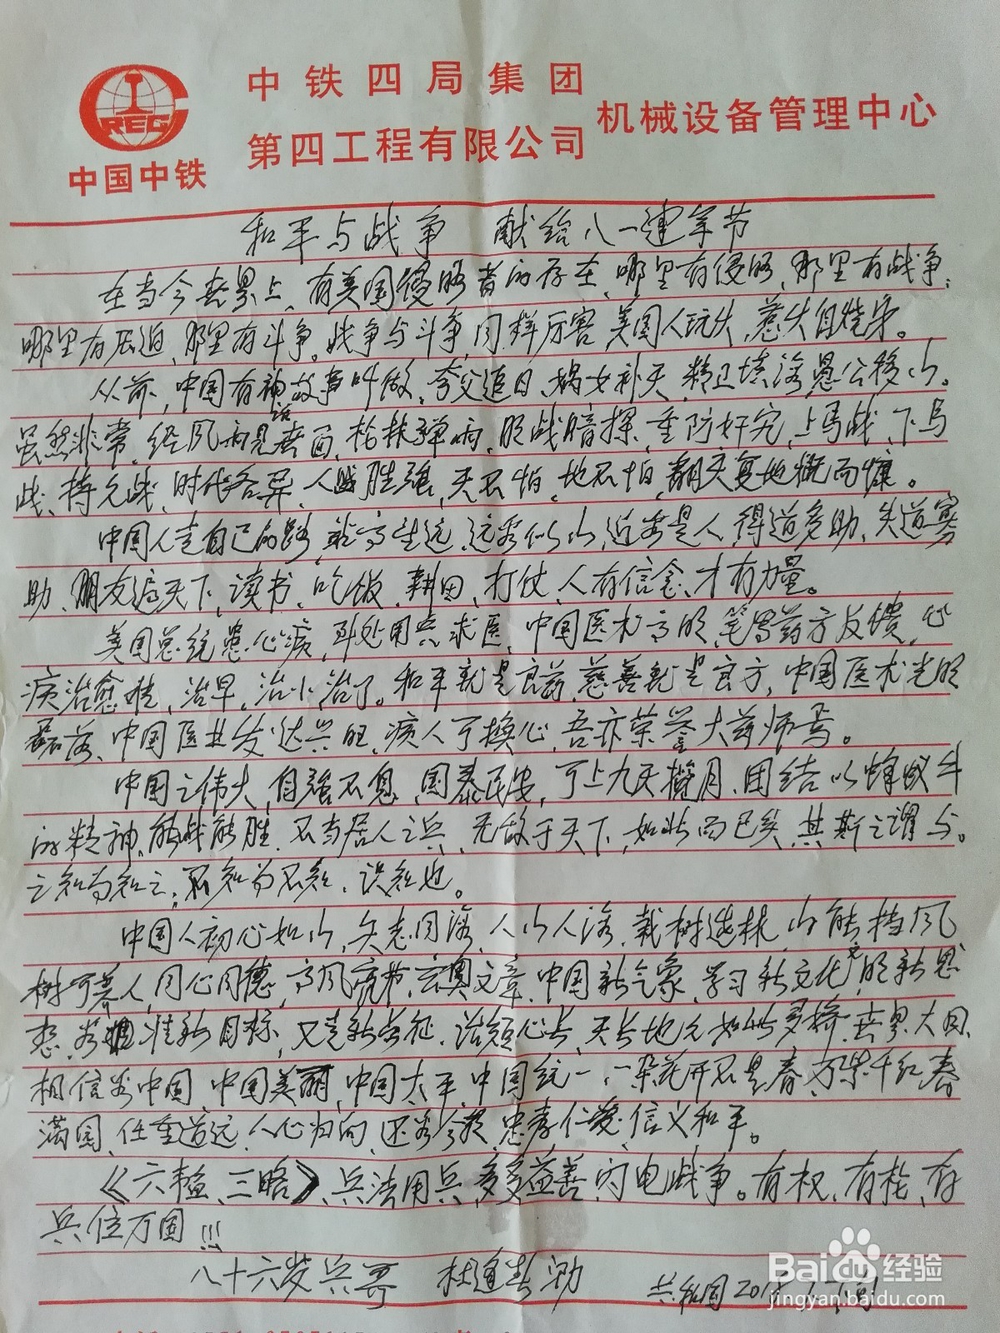 中铁四局集团
第四工程有限公司
机械设备管理中心
CREC
中国中铁
和平与战争 献给八一建军节
在当今世界上,有美国侵略者的存在,哪里有侵略,那里有战争;
哪里有压迫,那里有斗争。战争与斗争,同样厉害,美国人玩火,惹火自烧身。
从前,中国有神话故事叫做,夸父追日,娲女补天,精卫填海,愚公移山。
虽然非常,经风雨见世面,枪林弹雨,明战暗探,重防奸宄,上马战,下马
战,持久战,时代各异,人 胜强,天不怕,地不怕,翻天复地慨而慷。
中国人走自己的路,站高望远,远看似山,近看是人,得道多助,失道寡
助,朋友遍天下,读书,吃饭,耕田,打仗,人有信念,才有力量。
美国总统患心病,到处用兵求医,中国医术高明,笔写药方反馈,心
病治愈 ,治早,治小,治了。和平就是良药,慈善就是良方,中国医术光明
磊落,中国医业发达兴旺,病人可换心,吾亦荣誉大药师焉。
中国之伟大,自强不息,国泰民安,可上九天揽月,团结以 战斗
的精神,能战能胜,不当居人之兵,无敌于天下,如此而已矣,其斯之谓与。
之知为知之,不知为不知,识知也。
中国人初心如山,矢志同海,人山人海,栽树造林,山能挡风
树可养人,同心同德,高风亮节, 文章,中国新气象,学习新文化, 明新思
想,看 准新目标,又走新长征,话短心长,天长地久如此多娇,世界大同
相信我中国,中国美丽,中国太平,中国统一,一朵花开不是春,万紫千红春
满园,任重道远,人心归向,还看今朝,忠孝仁爱,信义和平。
《六韬、三略》,兵法用兵,多多益善,闪电战争。有权,有 ,有
兵位万国!!!
八十六岁兵哥 杜逢 勋 共和国201
Baidu经验
jingyan.baidu.com